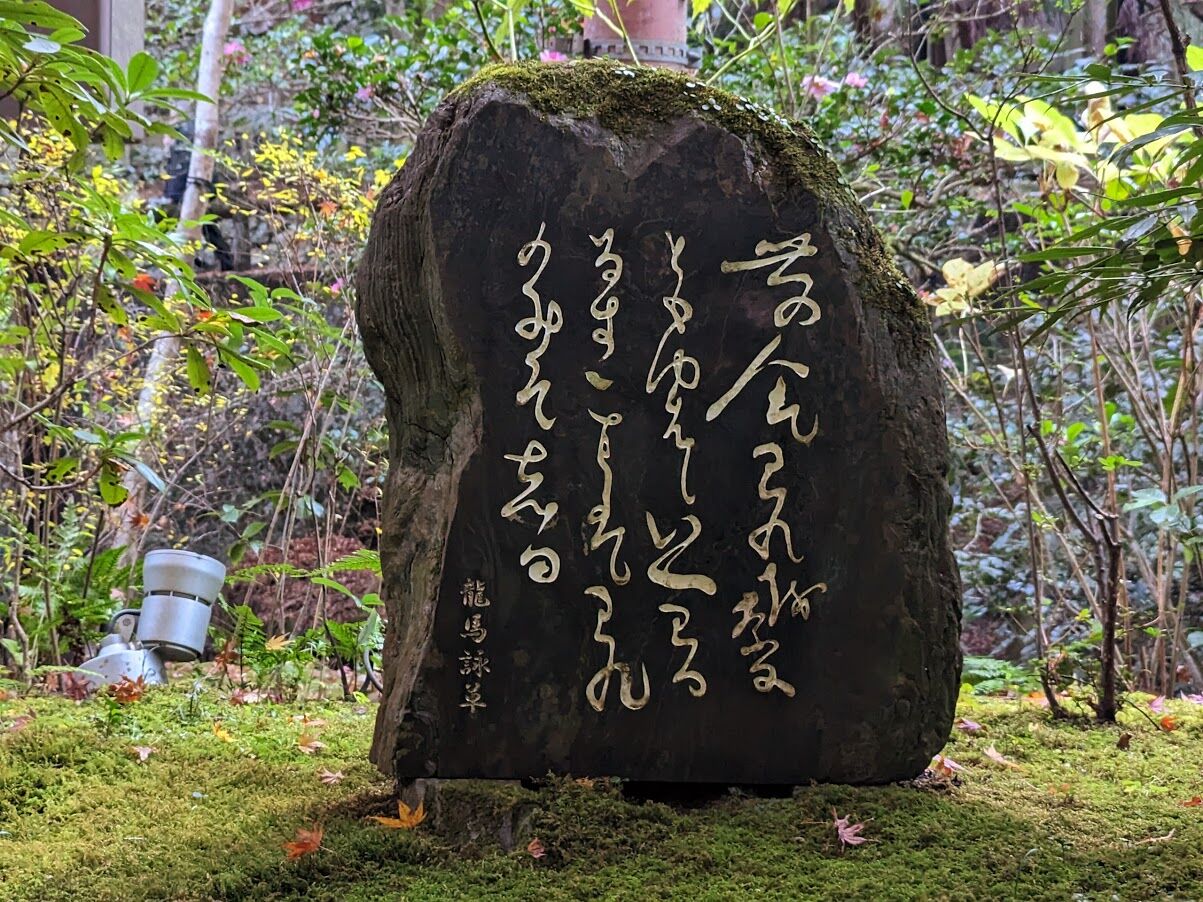 世の人はわれをなに
ともゆはゝいへわか
なすことはわれ
のみそしる
龍馬詠草